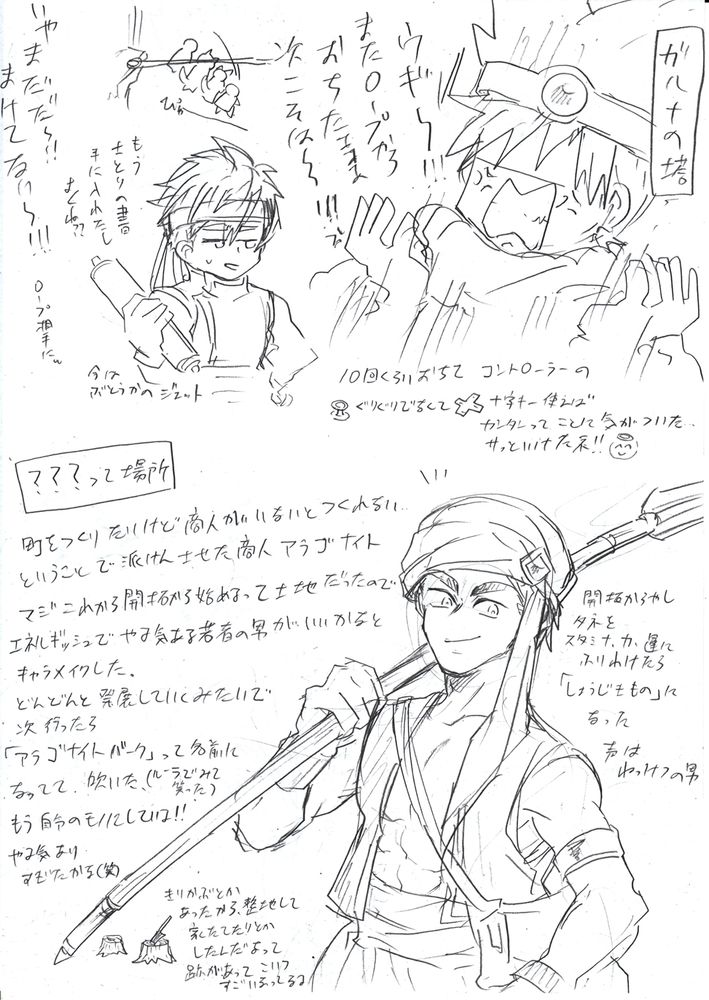 ガルナの塔
ウギ～!!!
またロープから
おちたぁぁ
次こそは～!!!
いやまだだ～!!
まけてない～!!!
ぴゅ
もう
さとりの書
手に入れたし
よくね??
ロープ相手に
今は
ぶとうかのジェット
10回くらいおちて コントローラーの
ぐりぐりでなくて 十字キー使えば
カンタンってことに気がついた…
サッといけたネ!!
???って場所
町をつくりたいけど商人がいないとつくれない…
ということで派けんさせた商人 アラゴナイト
マジこれから開拓から始めるって土地だったので
エネルギッシュでやる気ある若者の男がいいかなと
キャラメイクした。
どんどんと発展していくみたいで
次行ったら
「アラゴナイトバーク」って名前に
なってて、吹いた、(ルーラでみて
笑った)
もう自分のモノにしているは!!
やる気あり
すぎだたかる(笑)
開拓からやし
タネを
スタミナ、力、運に
ふりわけたら
「しょうじきもの」に
なった
きりかぶとか
あったから、整地して
家たてたりとか
したんだなって
跡があって こいつ